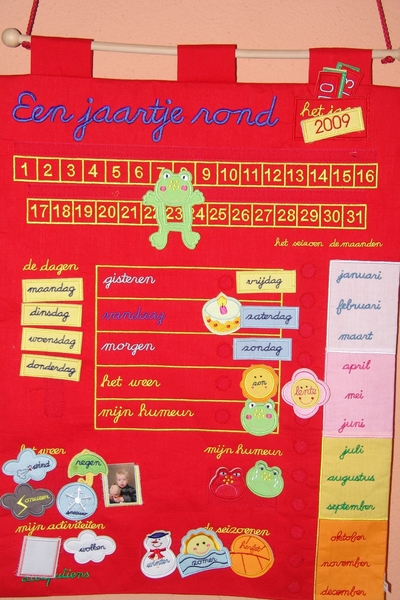 Een jaartje rond
10
het
2009
1 2 3 4 5 6 7 9 10 11 12 13 14 15 16
17 18 19 20 21 22 23 24 25 26 27 28 29 30 31
het seizoen de maanden
de dagen
maandag
dinsdag
woensdag
donderdag
gisteren vrijdag
vandaag zaterdag
morgen zondag
het weer zon lente
mijn humeur
januari
februari
maart
april
mei
juni
juli
augustus
september
oktober
november
december
het weer
wind
regen
onweer
sneeuw
mijn humeur
mijn activiteiten
wolken
de seizoenen
winter
zomer
herfst